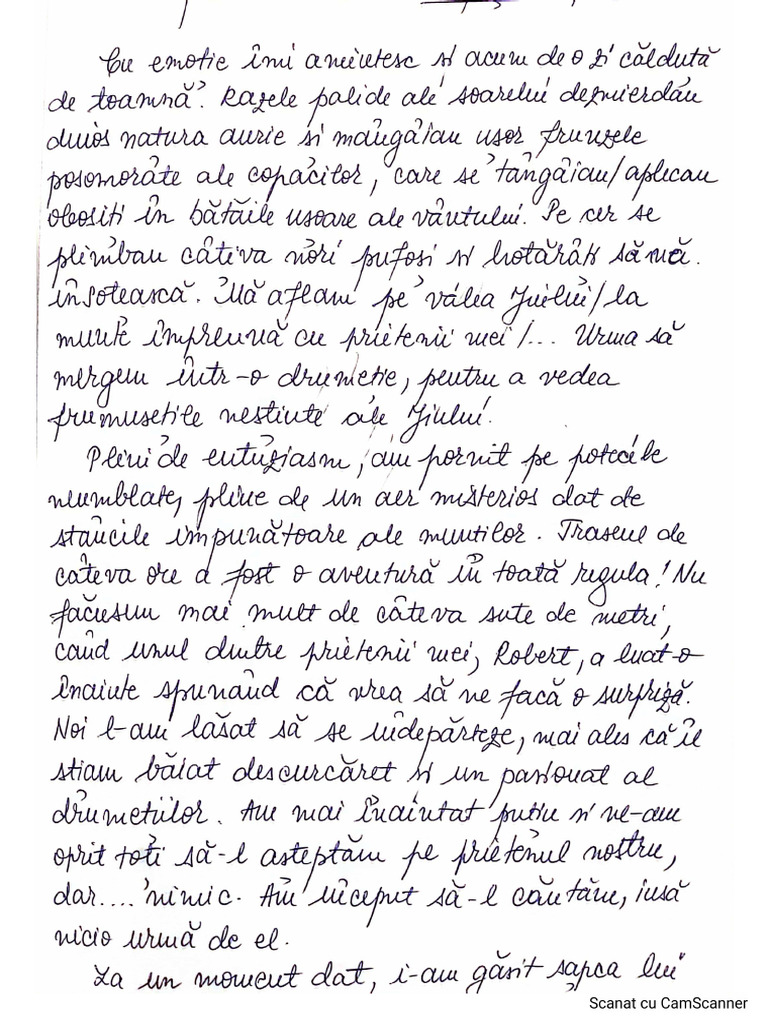 Cu emoție îmi amintesc și acum de o zi călduță
de toamnă. Razele palide ale soarelui dezmierdau
duios natura aurie și mângâiau ușor frunzele
posomorâte ale copacilor, care se tângâiau/aplecau
obosiți în bătăile ușoare ale vântului. Pe cer se
plimbau câteva nori pufoși și hotărâți să mă
însoțească. Mă aflam pe valea Jiului/la
munte împreună cu prietenii mei/... Urma să
mergem într-o drumeție, pentru a vedea
frumusețile neștiute ale Jiului.
Plini de entuziasm, am pornit pe potecile
neumblate, pline de un aer misterios dat de
stâncile impunătoare ale munților. Traseul de
câteva ore a fost o aventură în toată regula! Nu
făcusem mai mult de câteva sute de metri,
când unul dintre prietenii mei, Robert, a luat-o
înainte spunând că vrea să ne facă o surpriză.
Noi l-am lăsat să se îndepărteze, mai ales că îl
știam băiat descurcăreț și un pasionat al
drumețiilor. Am mai înaintat puțin și ne-am
oprit toți să-l așteptăm pe prietenul nostru,
dar.... nimic. Am început să-l căutăm, însă
nicio urmă de el.
La un moment dat, i-am găsit șapca lui
Scanat cu CamScanner